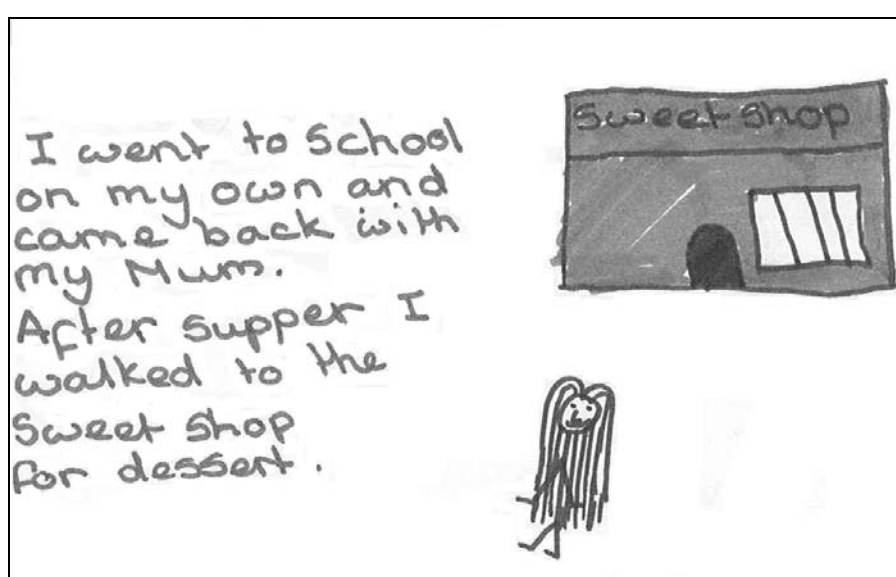 I went to school
on my own and
came back with
my Mum.
After supper I
walked to the
Sweet shop
for dessert.
Sweet shop